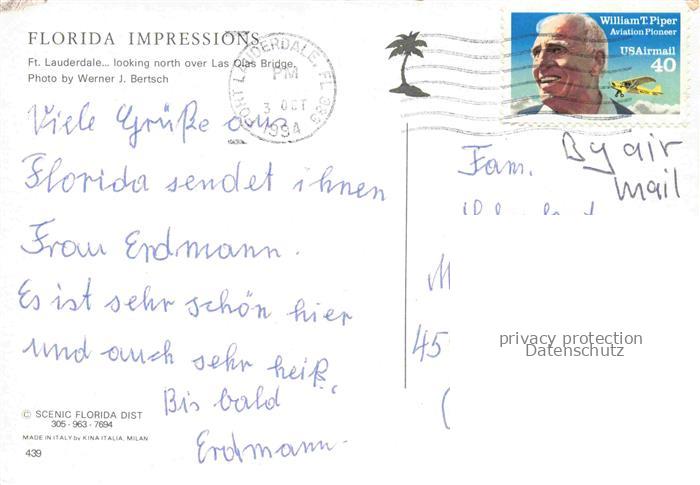 FLORIDA IMPRESSIONS
Ft. Lauderdale... looking north over Las Olas Bridge.
Photo by Werner J. Bertsch
FORT LAUDERDALE, FL 333
PM
3 OCT
1994
William T. Piper
Aviation Pioneer
USAirmail
40
Viele Grüße aus
Florida sendet ihnen
Frau Erdmann.
Es ist sehr schön hier
und auch sehr heiß.
Bis bald
Erdmann.
By air
mail
Fam.
M
45
(
privacy protection
Datenschutz
© SCENIC FLORIDA DIST
305 - 963 - 7694
MADE IN ITALY by KINA ITALIA, MILAN
439